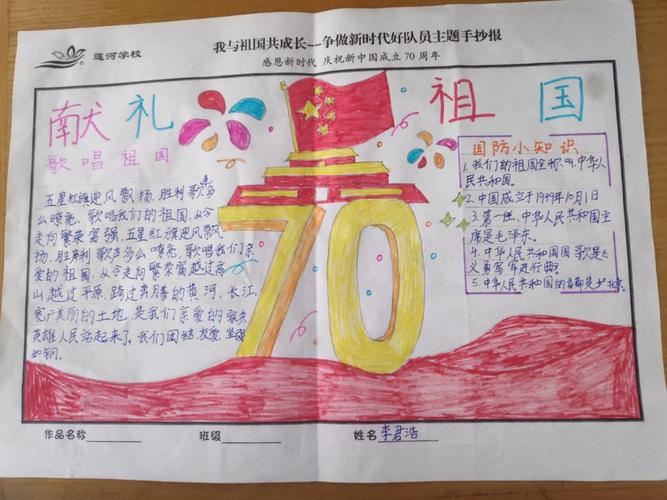 莲河学校
我与祖国共成长—争做新时代好队员主题手抄报
感恩新时代 庆祝新中国成立70周年
献礼 祖国
歌唱祖国
五星红旗迎风飘扬,胜利歌声多
么嘹亮,歌唱我们的祖国,从今
走向繁荣富强,五星红旗迎风飘
扬,胜利歌声多么嘹亮,歌唱我们亲
爱的祖国,从今走向繁荣富越过高
山,越过平原,跨过奔腾的黄河、长江,
宽广美丽的土地,是我们亲爱的家乡,
英雄人民站起来了,我们团结友爱,坚强
如钢。
70
国防小知识
1.我们的祖国全称叫中华人
民共和国。
2.中国成立于1949年10月1日
3.第一任中华人民共和国主
席是毛泽东。
4.中华人民共和国国歌是《
义勇军进行曲》
5.中华人民共和国的首都是北京
作品名称 班级 姓名 李君浩